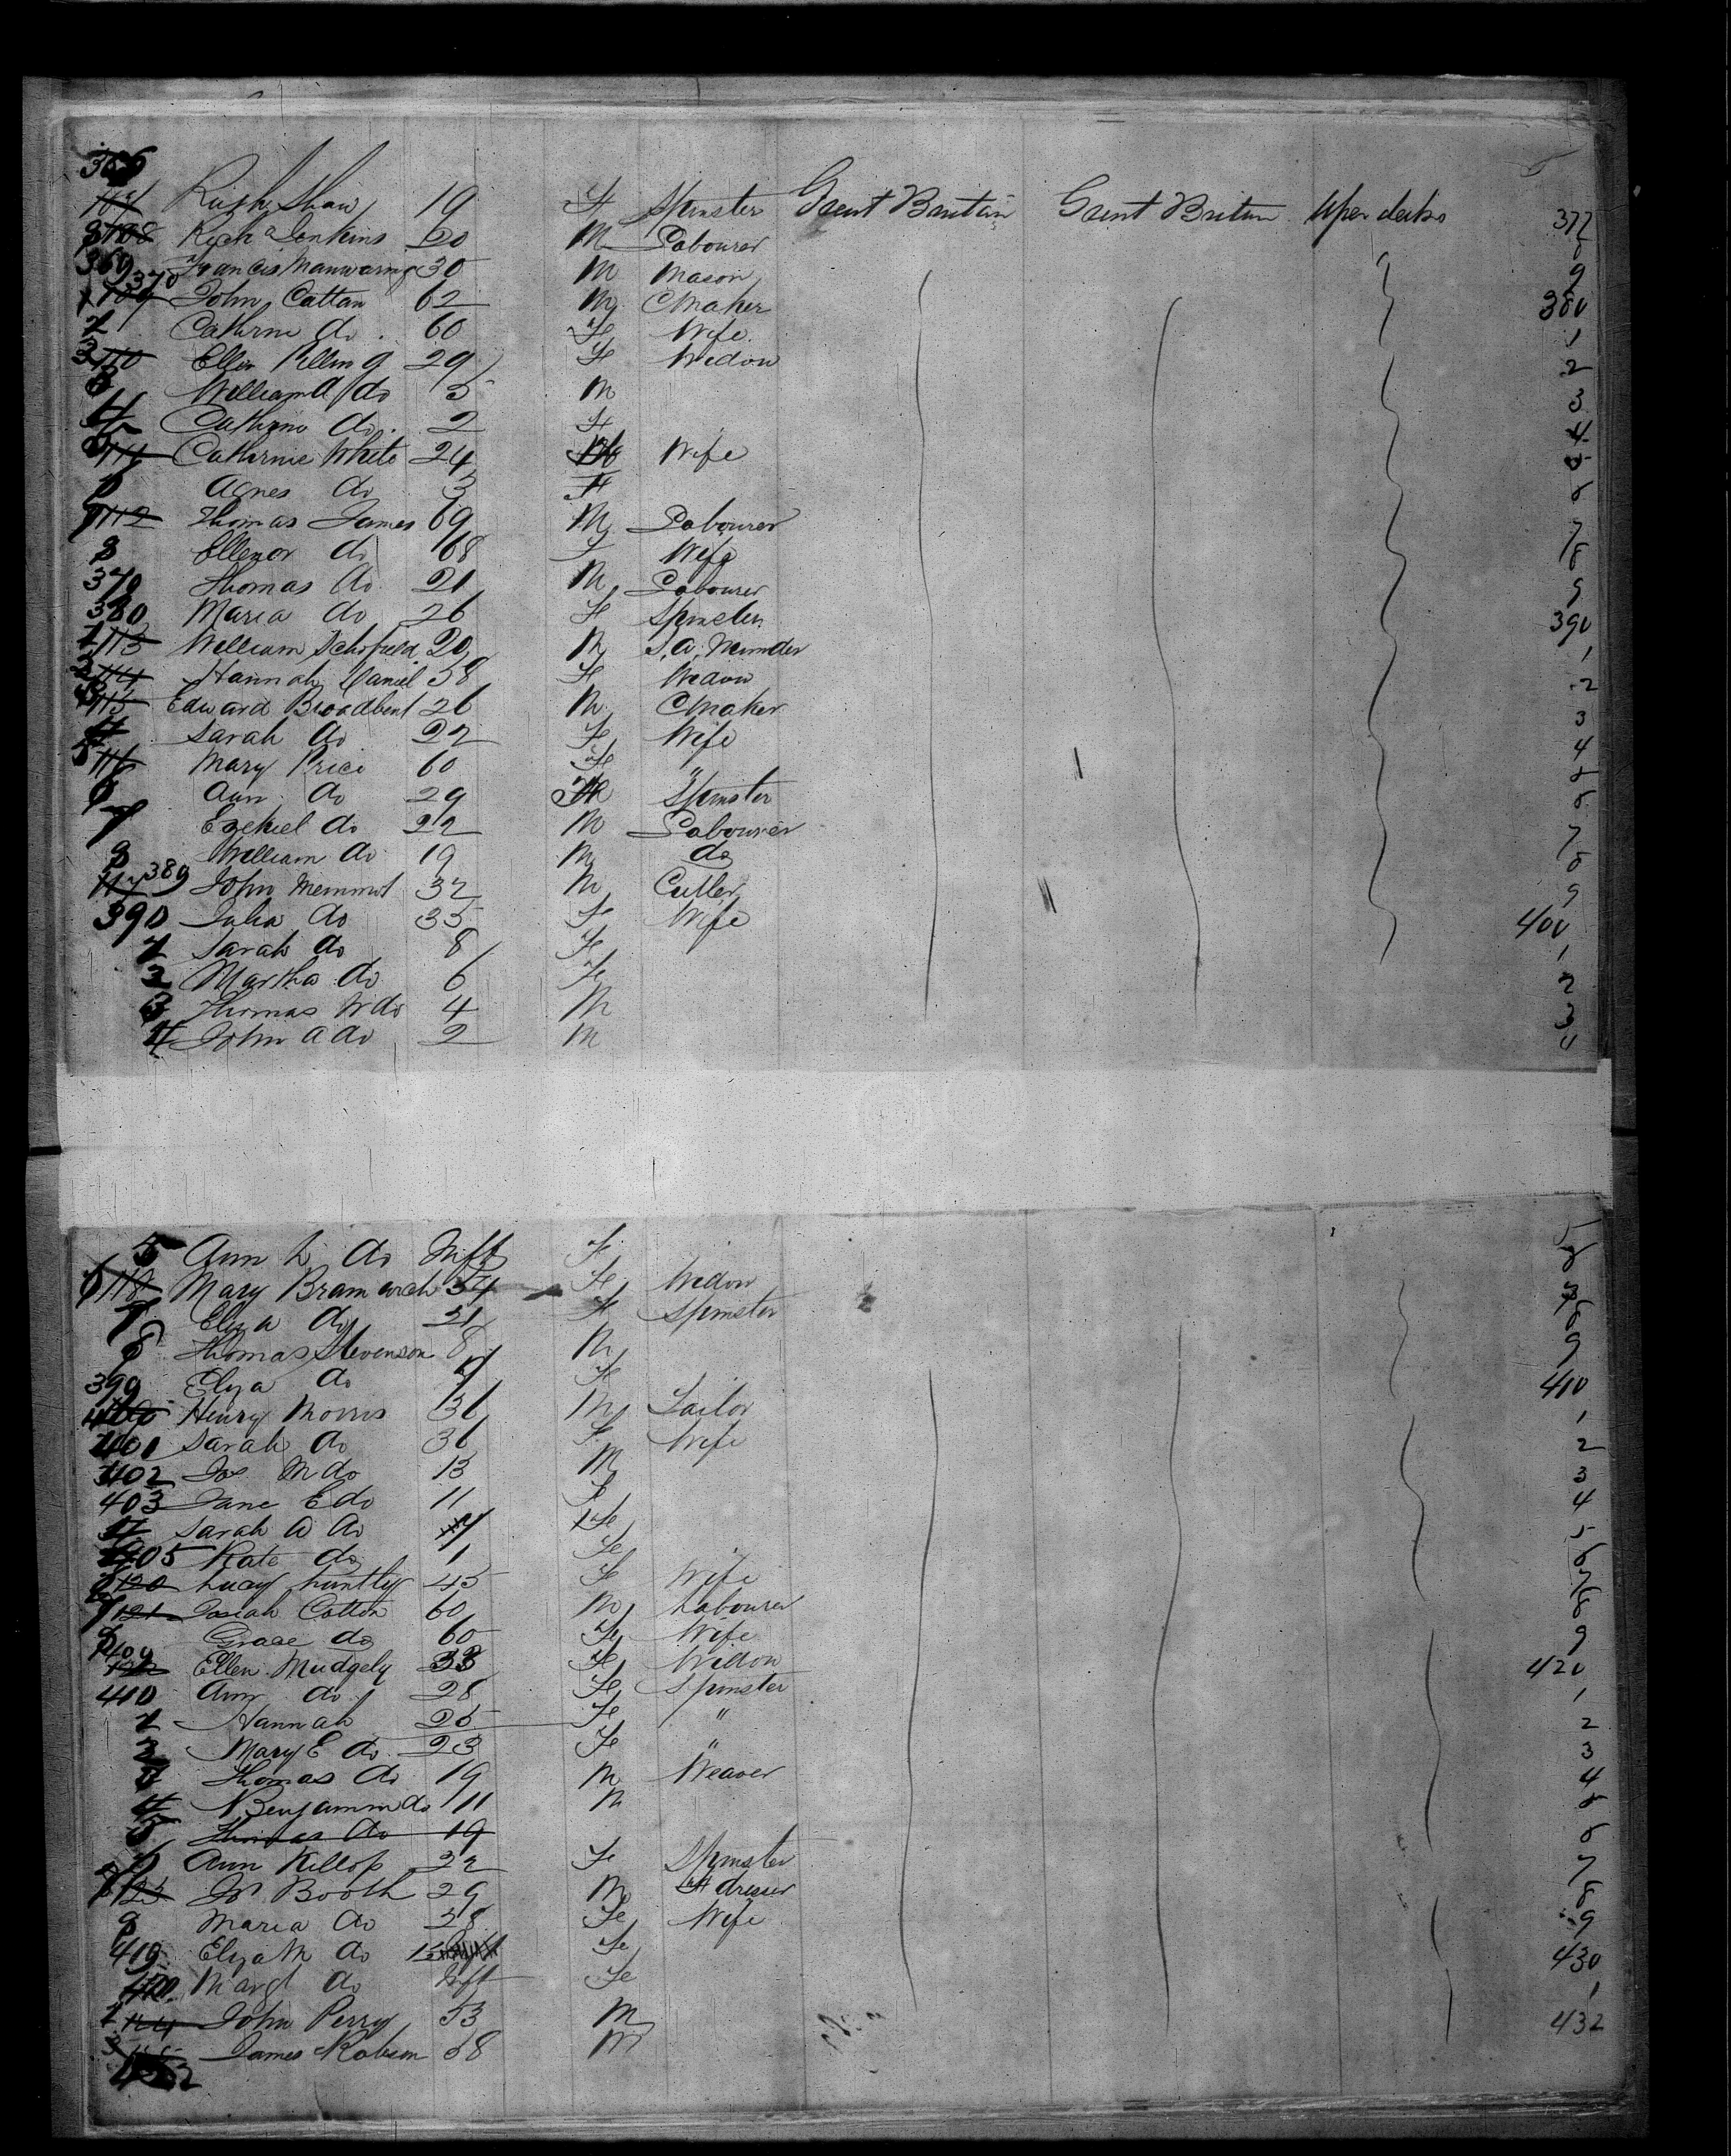 Shaw 19 F Spinster Great Britain Great Britain Uper decks 377
Richd Jenkins 20 M Labourer
369 Francis Manwaring 30 M Mason 9
370 John Cattan 62 M C Maker 380
2 Cathrine do 60 Fe Wife 1
110 Ellen 29 Fe Widow 2
William do 5 M 3
Cathrine do. 2 F 4
111 Catherine White 24 Wife
Agnes do 3 F
112 Thomas James 69 M Labourer 7
8 Ellenor do 68 F Wife 8
Thomas do 21 M Labourer 9
380 Maria do 26 Fe Spinster 390
1 113 William Schofield 20 M 1
2 114 Hannah Daniel 38 Fe Widow 2
115 Edward Broadbent 26 M C Maker 3
4 Sarah do 22 Fe Wife 4
5 116 Mary Price 60 Fe "
6 Ann do 29 Spinster
7 Ezekiel do 22 M Labourer 7
8 William do 19 M do 8
117 389 John Memmot 32 M Cutler 9
390 Julia do 35 Fe Wife 400
1 Sarah do 8 Fe 1
2 Martha do 6 Fe 2
3 Thomas W do 4 M 3
4 John A do 2 M 4
5 Ann L do Inft F
6 118 Mary 54 Fe Widow
7 Eliza do 21 F Spinster
8 Thomas Stevenson 8 M 9
399 Eliza do Fe 410
Henry Morris 36 M Tailor 1
401 Sarah do 36 F Wife 2
402 Jos M do 13 M 3
403 Jane E do 11 F 4
4 Sarah A do Fe
405 Kate do 1 Fe
120 Lucy Huntley 45 Fe Wife
7 121 Josiah Cotton 60 M Labourer
8 Grace do 60 Fe Wife 9
409 Ellen Mudgely Fe Widow 420
410 Ann do 28 Fe Spinster 1
1 Hannah 25 Fe " 2
2 Mary E do 23 Fe " 3
3 Thomas do 19 M Weaver 4
4 Benjamin do 11 M
5 Thomas do 19
6 Ann Killop 22 Fe Spinster 7
7 123 Booth 29 M dresser 8
8 Maria do 28 Fe Wife 9
419 Eliza M do Fe 430
Margt do Inft Fe 1
1 John Perry 53 M 432
James Robson 58 M